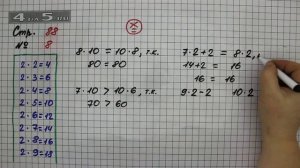 4apa5.ru
Стр. 88
№ 8
2·2=4
2·3=6
2·4=8
2·5=10
2·6=12
2·7=14
2·8=16
2·9=18
×=
8·10 = 10·8, т.к.
80 = 80
7·10 > 10·6, т.к.
70 > 60
7·2+2 = 8·2,
14+2 = 16
16 = 16
9·2-2 10·2